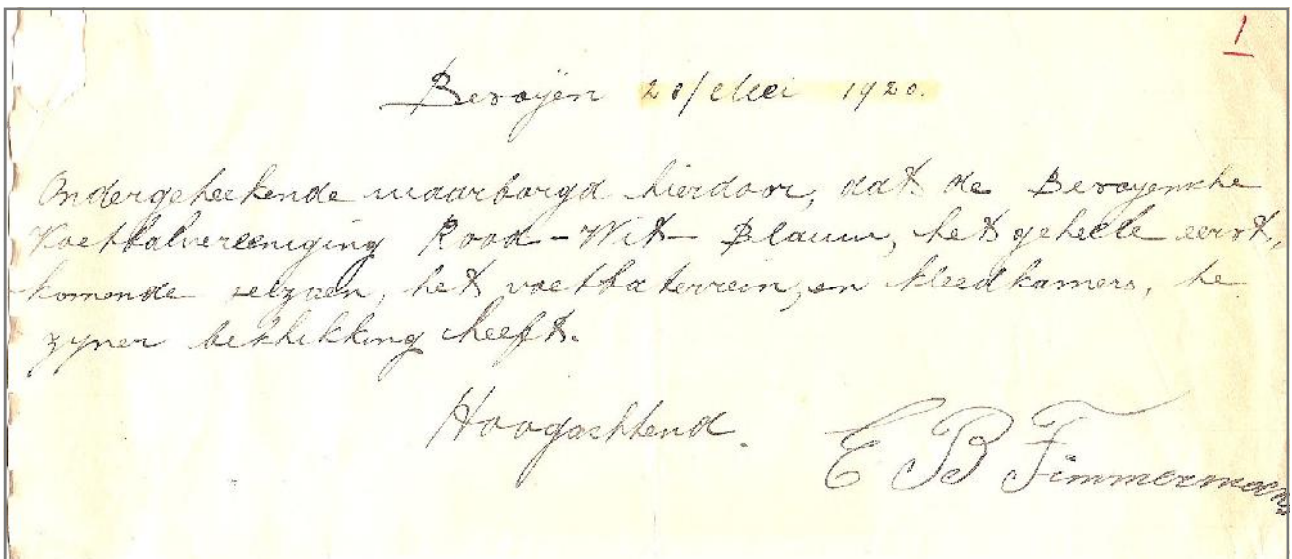 1
Beroijen 20/Mei 1920.
Ondergeteekende waarborgd hierdoor, dat de Beroyensche
Voetbalvereeniging Rood-Wit-Blauw, het geheele eerst,
komende seizoen, het voetba terrein, en kleedkamers, te
zyner beschikking heeft.
Hoogachtend.
E B Timmermans